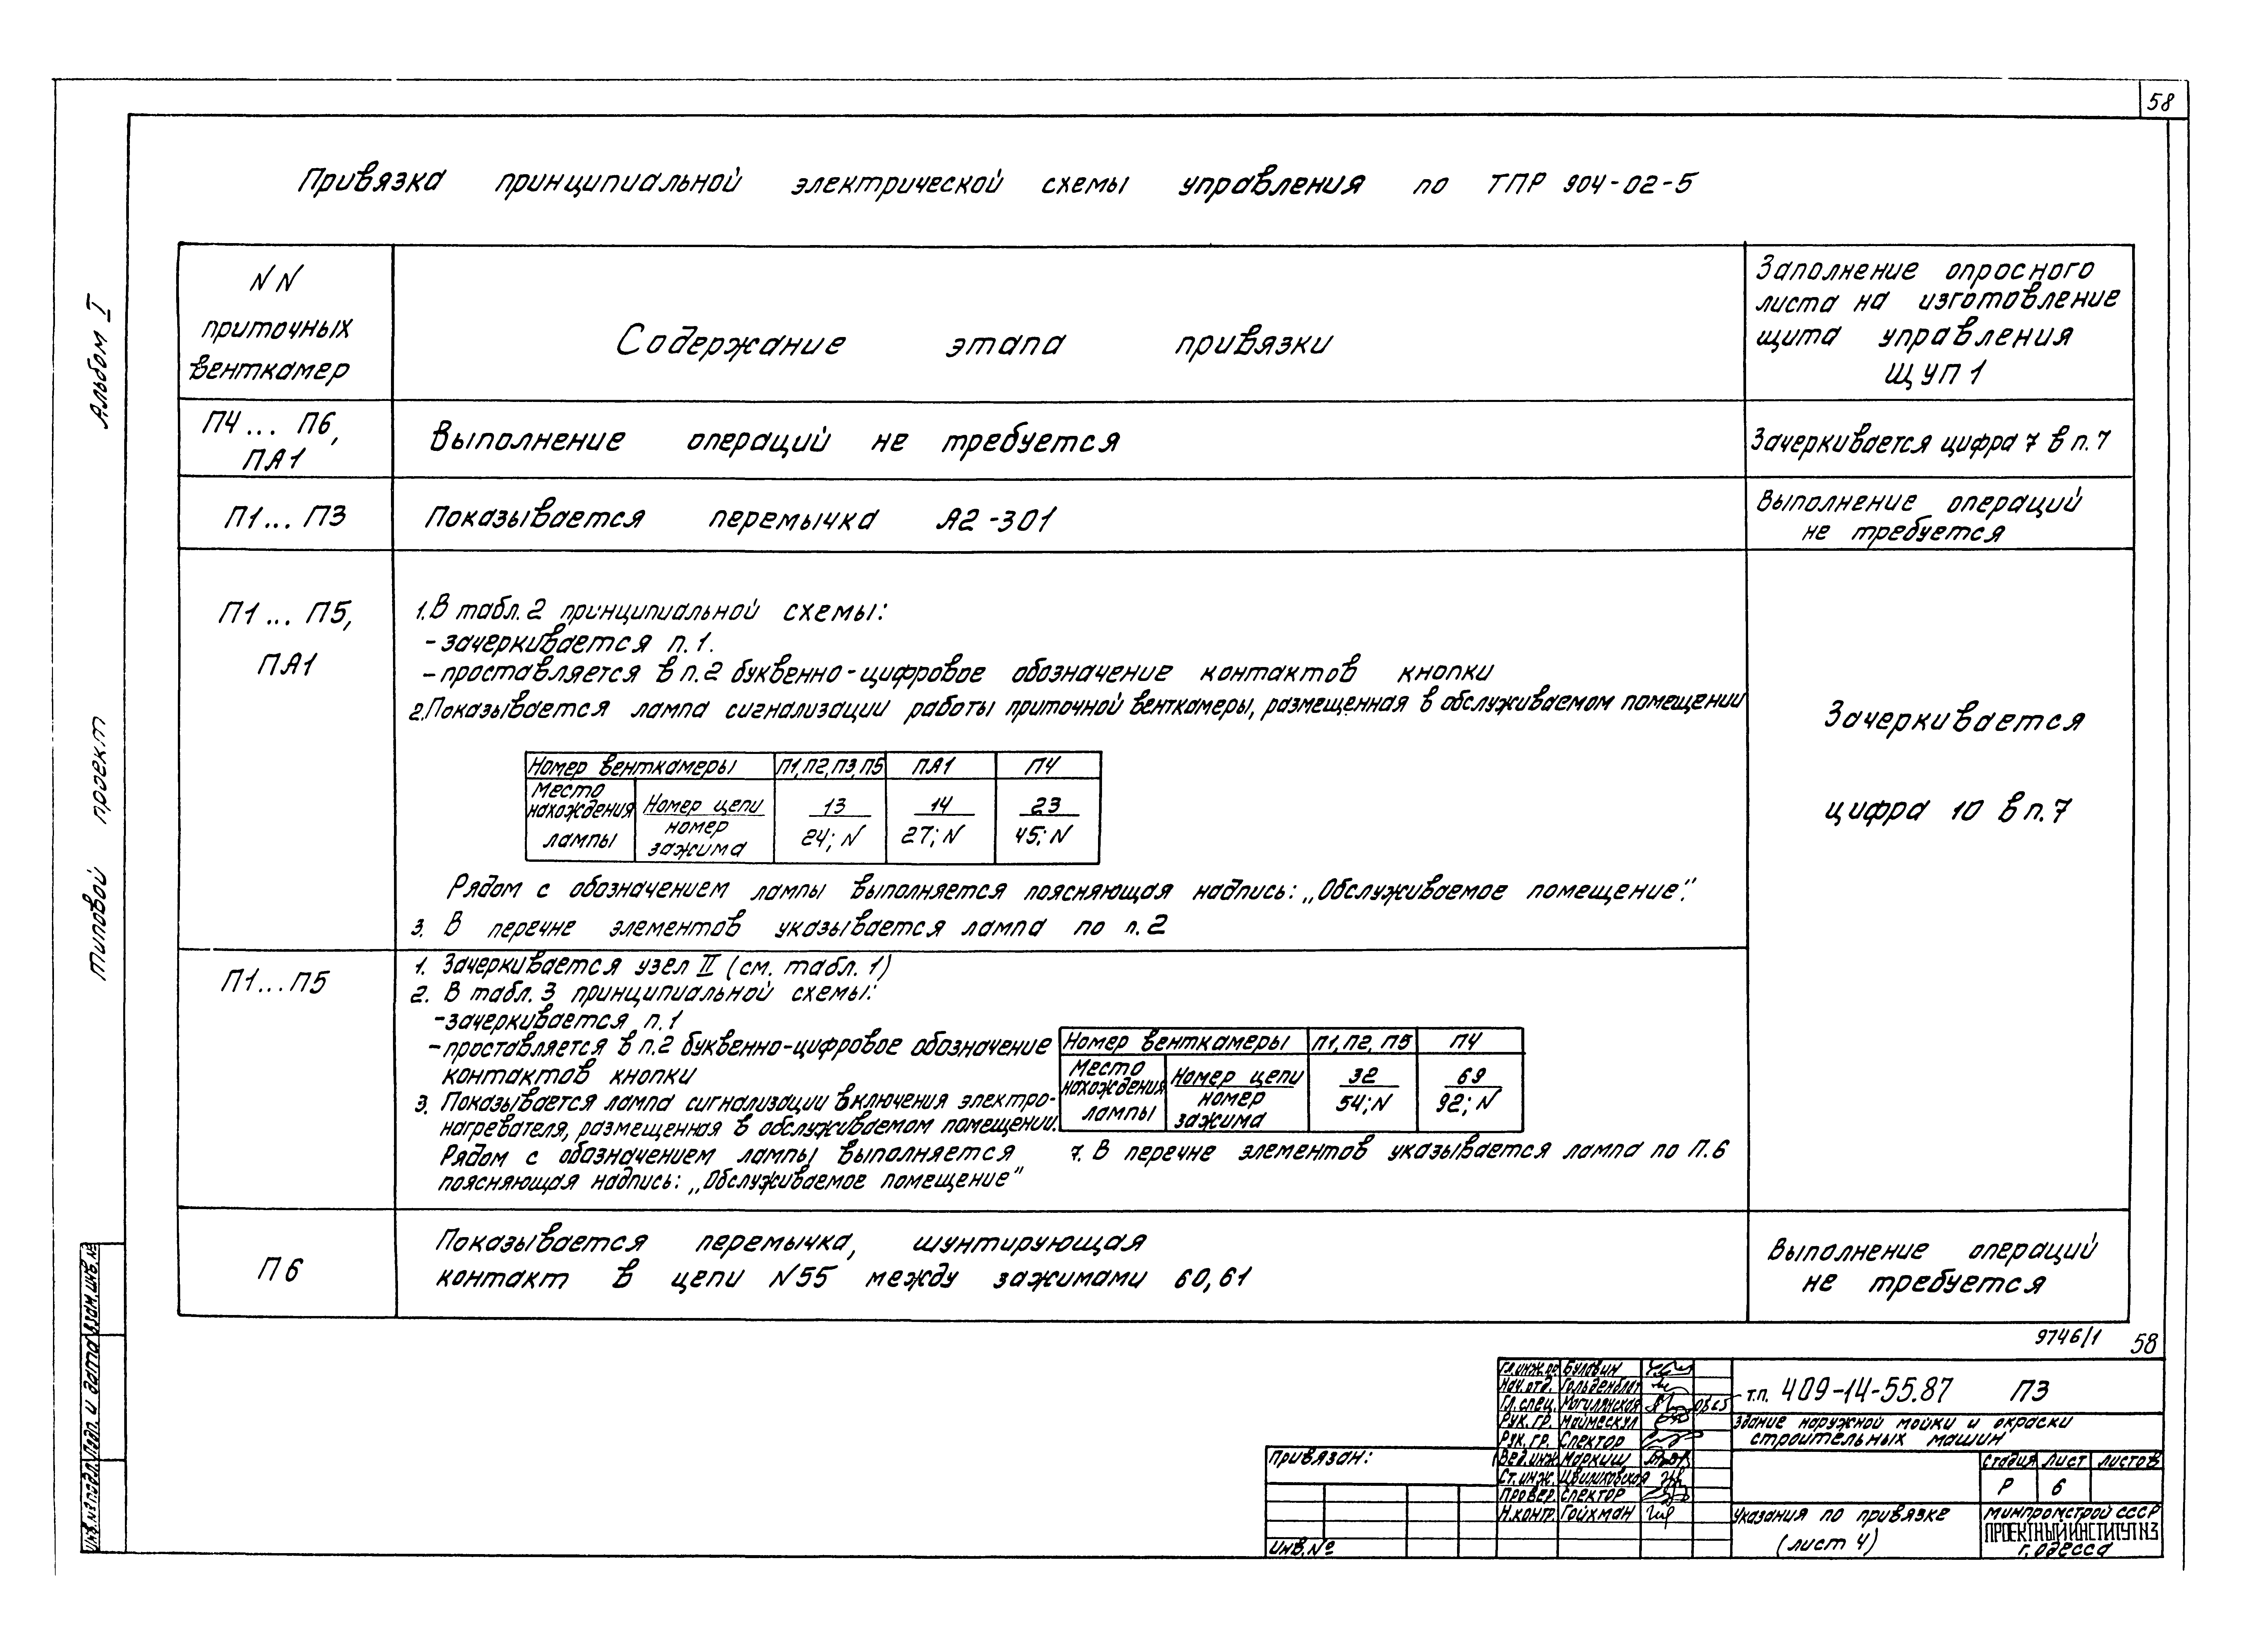 58
Привязка принципиальной электрической схемы управления по ТПР 904-02-5
Альбом I
типовой проект
NN
приточных
венткамер
Содержание этапа привязки
Заполнение опросного
листа на изготовление
щита управления
ЩУП1
П4... П6,
ПА1
Выполнение операций не требуется
Зачеркивается цифра 7 в п.7
П1... П3
Показывается перемычка А2-301
Выполнение операций
не требуется
П1... П5,
ПА1
1. В табл. 2 принципиальной схемы:
- зачеркивается п.1.
- проставляется в п.2 буквенно-цифровое обозначение контактов кнопки
2. Показывается лампа сигнализации работы приточной венткамеры, размещенная в обслуживаемом помещении
Номер венткамеры П1, П2, П3, П5 ПА1 П4
Место
нахождения
лампы
Номер цепи 13 14 23
номер
зажима
24; N 27; N 45; N
Рядом с обозначением лампы выполняется поясняющая надпись: „Обслуживаемое помещение".
3. В перечне элементов указывается лампа по п.2
Зачеркивается
цифра 10 в п.7
П1...П5
1. Зачеркивается узел II (см. табл. 1)
2. В табл. 3 принципиальной схемы:
- зачеркивается п.1
- проставляется в п.2 буквенно-цифровое обозначение
контактов кнопки
3. Показывается лампа сигнализации включения электро-
нагревателя, размещенная в обслуживаемом помещении.
Рядом с обозначением лампы выполняется
поясняющая надпись: „Обслуживаемое помещение"
Номер венткамеры П1, П2, П5 П4
Место
нахождения
лампы
Номер цепи 32 69
номер
зажима
54; N 92; N
7. В перечне элементов указывается лампа по П.6
П6
Показывается перемычка, шунтирующая
контакт в цепи N55 между зажимами 60,61
Выполнение операций
не требуется
9746/1 58
Инв. № подл. Подп. и дата Взам. инв. №
Привязан:
Инв. №
Гл. инж. пр. Булавин
Нач. отд. Гольденблат
Гл. спец. Могилянская
Рук. гр. Маймескул
Рук. гр. Спектор
Вед. инж. Маркиш
Ст. инж.
Провер. Спектор
Н. контр. Гойхман
т.п. 409-14-55.87 ПЗ
Здание наружной мойки и окраски
строительных машин
Стадия Лист Листов
Р 6
Указания по привязке
(лист 4)
Минпромстрой СССР
ПРОЕКТНЫЙ ИНСТИТУТ N3
г. Одесса